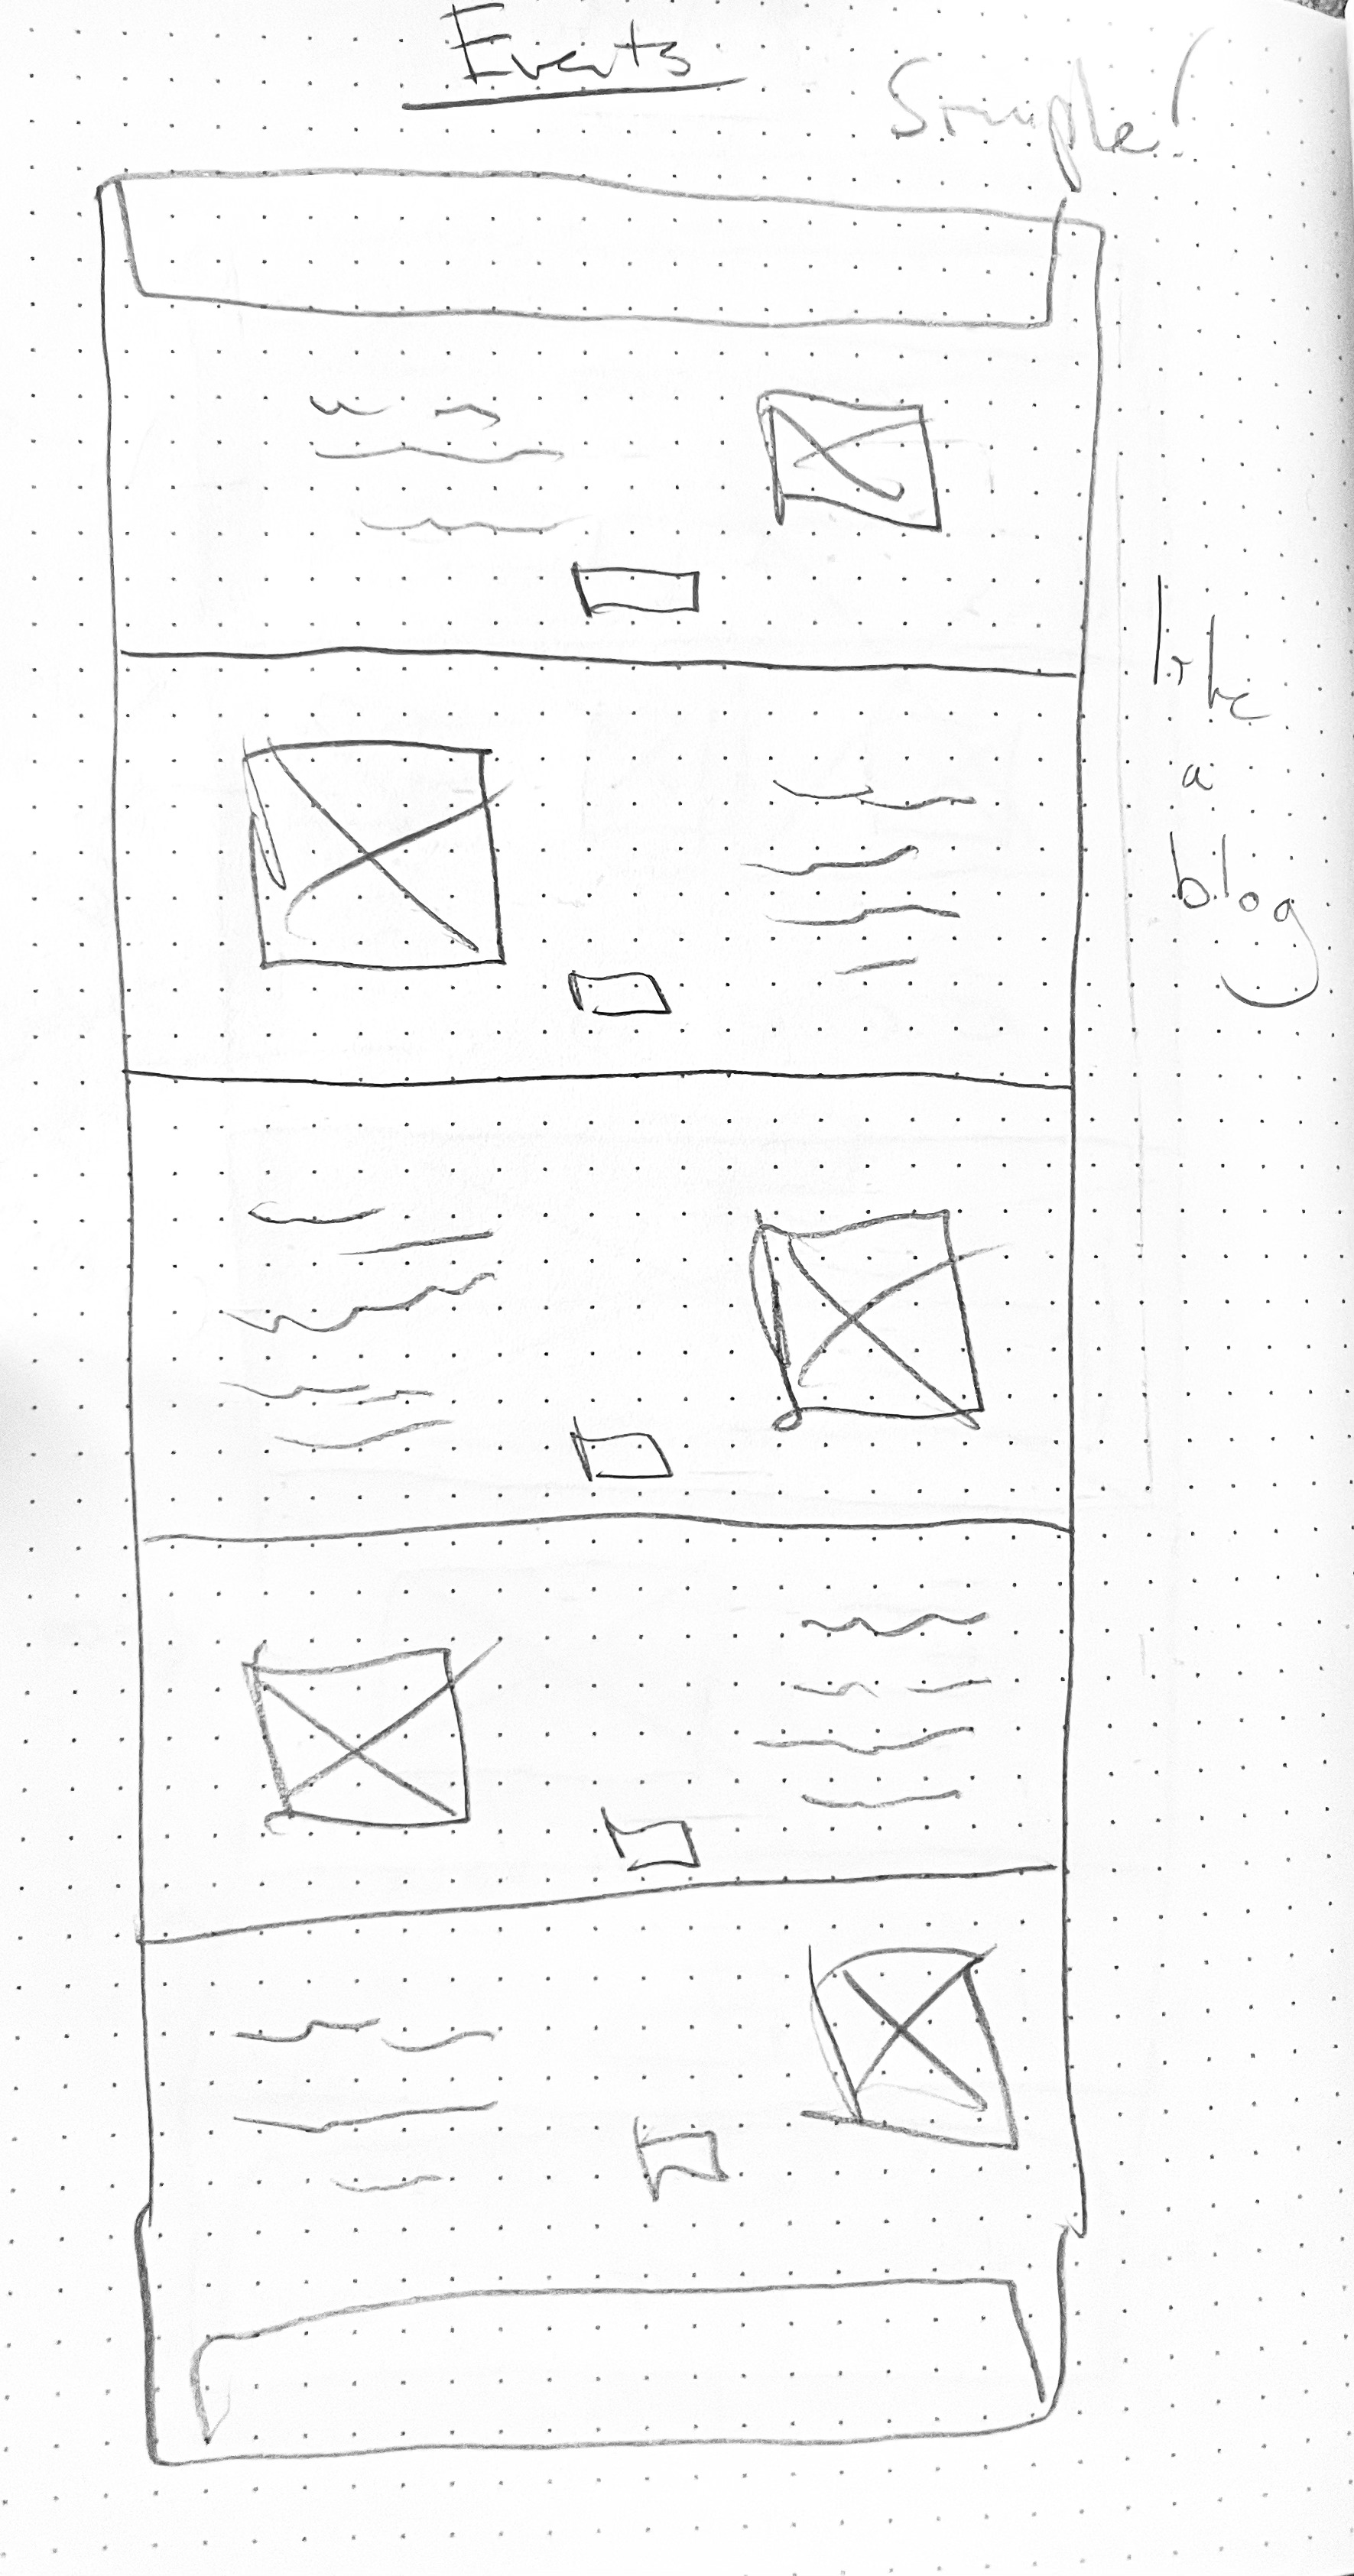 Events
Simple!
like
a
blog